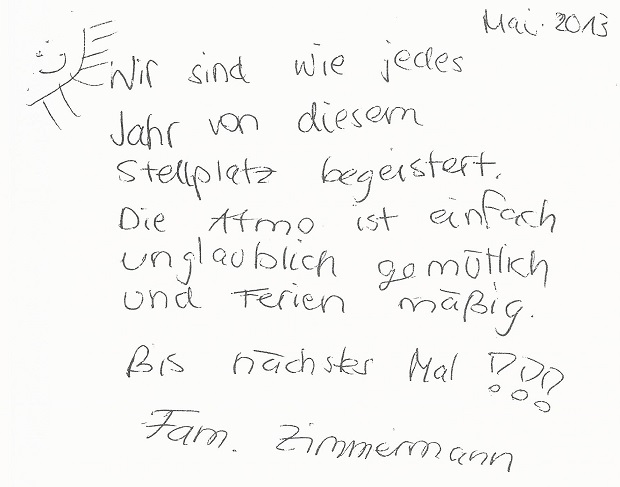 Mai. 2013
Wir sind wie jedes
Jahr von diesem
Stellplatz begeistert.
Die Atmo ist einfach
unglaublich gemütlich
und Ferien mäßig.
Bis nächstes Mal !!!
Fam. Zimmermann